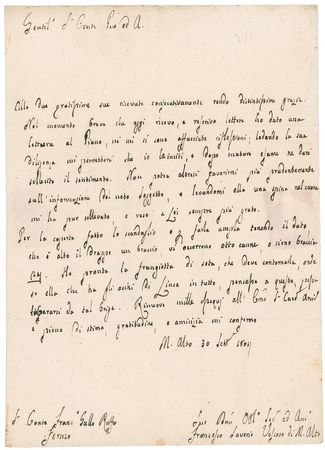 Gentil.º Sr Conte Pne ed A.
Alle due gratissime sue ricevute consecutivamente rendo distintissime grazie.
Nel momento breve che oggi ricevo, a riservo lettera ho dato una
al Piano, nè mi si sono affacciate riflessioni. lodando la sua
diligenza mi permetterà che io la imiti, e dopo maturo esame ne darò
sollecito il sentimento. Non potea altresì favorirmi più prudentemente
sull'informazione del noto soggetto, e levandomi alla una spina nel cuore
mi ha pur sollevato, e reso a Lei sempre più grato.
Per la coperta fatto lo scandaglio e a farla ampla tenendo il dato
che è alto il Drappo un braccio vi occorrono otto canne, o sieno braccia
Ho pronta la frangietta di seta, che deve contornarla, onde
se ella che ha gli occhi di Lince in tutto, pensasse a questa,
da tal briga. Rinnovo mille ossequj all'
e pieno di stima gratitudine, e amicizia mi confermo
M. Alto 30 Sett. 1804
Sr Conte Franc.º Gallo
Fermo
Suo Dmo Obl.º Ser ed Am.º
Francesco Saverio Vescovo di M. Alto